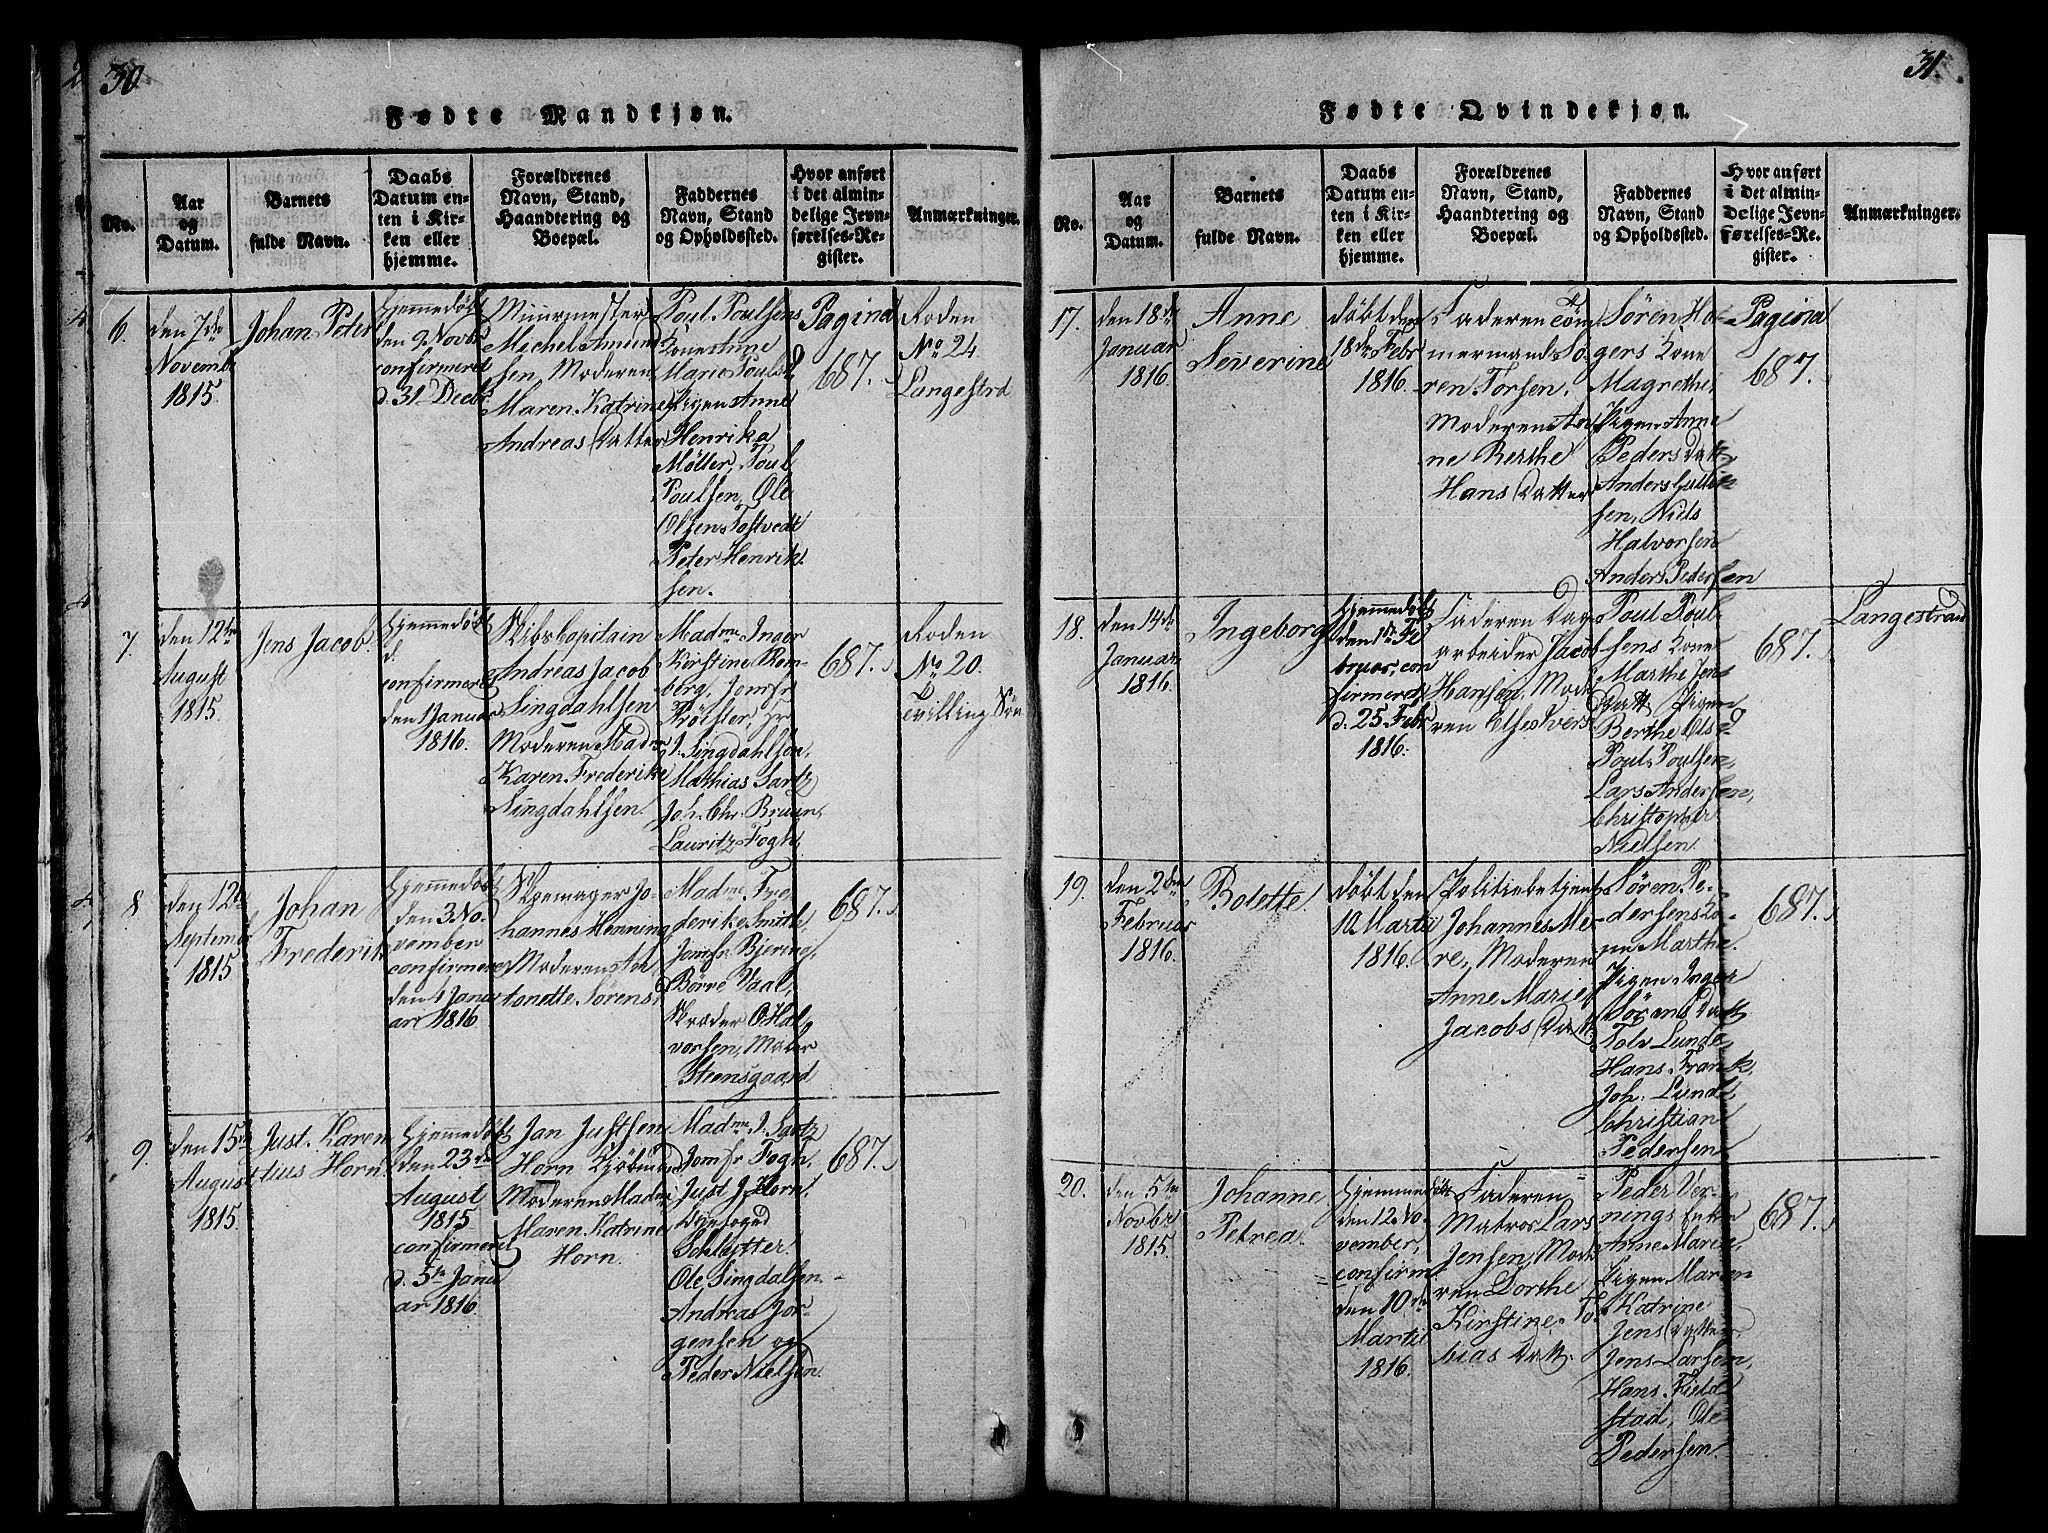 30
Fødte Mandkjøn.
No.
Aar
og
Datum.
Barnets
fulde Navn.
Daabs
Datum en-
ten i Kir-
ken eller
hjemme.
Forældrenes
Navn, Stand,
Haandtering og
Boepæl.
Faddernes
Navn, Stand
og Opholdssted.
Hvor anført
i det almin-
delige Jevn-
førelses-Re-
gister.
Anmærkninger.
6.
den 7de
Novemb
1815.
Johan Peter
Hjemmedøbt
den 9 Novbr
confirmeret
d. 31 Decb
Muurmester
Michel Amund
sen, Moderen
Maren Katrine
Andreas Datter
Poul Poulsens
Kone
Marie Pouls
Pigen Anne
Henrika
Möller, Poul
Poulsen, Ole
Olsen Tostvedt
Peter Henrik
sen.
Pagina
687.
Roden
No 24.
Langestrd
7.
den 12te
August
1815.
Jens Jacob.
Hjemmedøbt
d.
confirmeret
den 1 Januar
1816.
Skibskapitain
Andreas Jacob
Singdahlsen
Moderen Madm
Karen Frederike
Singdahlsen.
Madme Inger
Kirstine Rom-
berg, Jomfr
Pröister, Hr
J. Singdahlsen,
Mathias Sartz
Joh. Chr. Bruun,
Lauritz Fogh.
687.
Roden
No 20.
Tvilling Søn
8
den 12te
Septemb
1815
Johan
Frederik
Hjemmedøbt
den 3 No
vember
confirmeret
den 4 Janu
ar 1816
Skoemager Jo-
hannes Henning
Moderen An
tonette Sörens
Madme Fre
derike Smith,
Jomfr Bjering,
Børre Vaal,
Skræder O Hal
vorsen, Maler
Steensgaard
687.
9.
den 15de
August
1815.
Just. Karen
tius Horn
Hjemmedøbt
den 23de
August
1815
confirmeret
d. 5te Janu
ar 1816
Jan Justsen
Horn Kjöbmd
Moderen Made
Maren Katrine
Horn.
Madme J. Sartz
Jomfr Fogh,
Just J Horn,
Byefoged
Schlytter
Ole Singdalsen
Andreas Jör-
gensen og
Peder Nielsen.
687.
31.
Fødte Qvindekjøn.
No.
Aar
og
Datum.
Barnets
fulde Navn.
Daabs
Datum en-
ten i Kir-
ken eller
hjemme.
Forældrenes
Navn, Stand,
Haandtering og
Boepæl.
Faddernes
Navn, Stand
og Opholdssted.
Hvor anført
i det almin-
delige Jevn-
førelses-Re-
gister.
Anmærkninger.
17.
den 18de
Januar
1816.
Anne
Severine
døbt den
18de Febr
1816.
Faderen Töm
mermand Sö
ren Torsen,
Moderen An
ne Berthe
Hans Datter
Sören Ha-
gers Kone
Magrethe,
Pigen Anne
Peders Datt
Anders Gullik
sen, Niels
Halvorsen
Anders Pedersen
Pagina
687.
18.
den 14de
Januar
1816.
Ingeborg
Hjemmedøbt
den 1de Fe
bruar, con
firmeret
d. 25 Febr
1816.
Faderen Dag
arbeider Jacob
Hansen, Mode
ren Else Ivers
Poul Poul
sens Kone
Marthe Jens
Datt Pigen
Berthe Ols
Poul Poulsen,
Lars Andersen,
Christopher
Nielsen
687.
Langestrand
19.
den 2den
Februar
1816.
Bolette
døbt den
10 Martii
1816.
Politiebetjent
Johannes Me-
re, Moderen
Anne Marie
Jacobs Datt
Sören Pe-
dersens Ko-
ne Marthe.
Pigen Inger
Sörens Datt
Tolv Lunde
Hans Frank,
Joh. Lund,
Christian
Pedersen
687.
20.
den 5te
Novbr
1815.
Johanne
Petrea
Hjemmedøbt
den 12 No
vember,
confirm
den 10de
Martii
1816.
Faderen
Matros Lars
Jensen, Mode
ren Dorthe
Kirstine To
bias Datt.
Peder Ver-
nings Enke
Anne Marie,
Pigen Maren
Katrine
Jens Datter
Jens Larsen,
Hans Field
stad, Ole
Pedersen.
687.